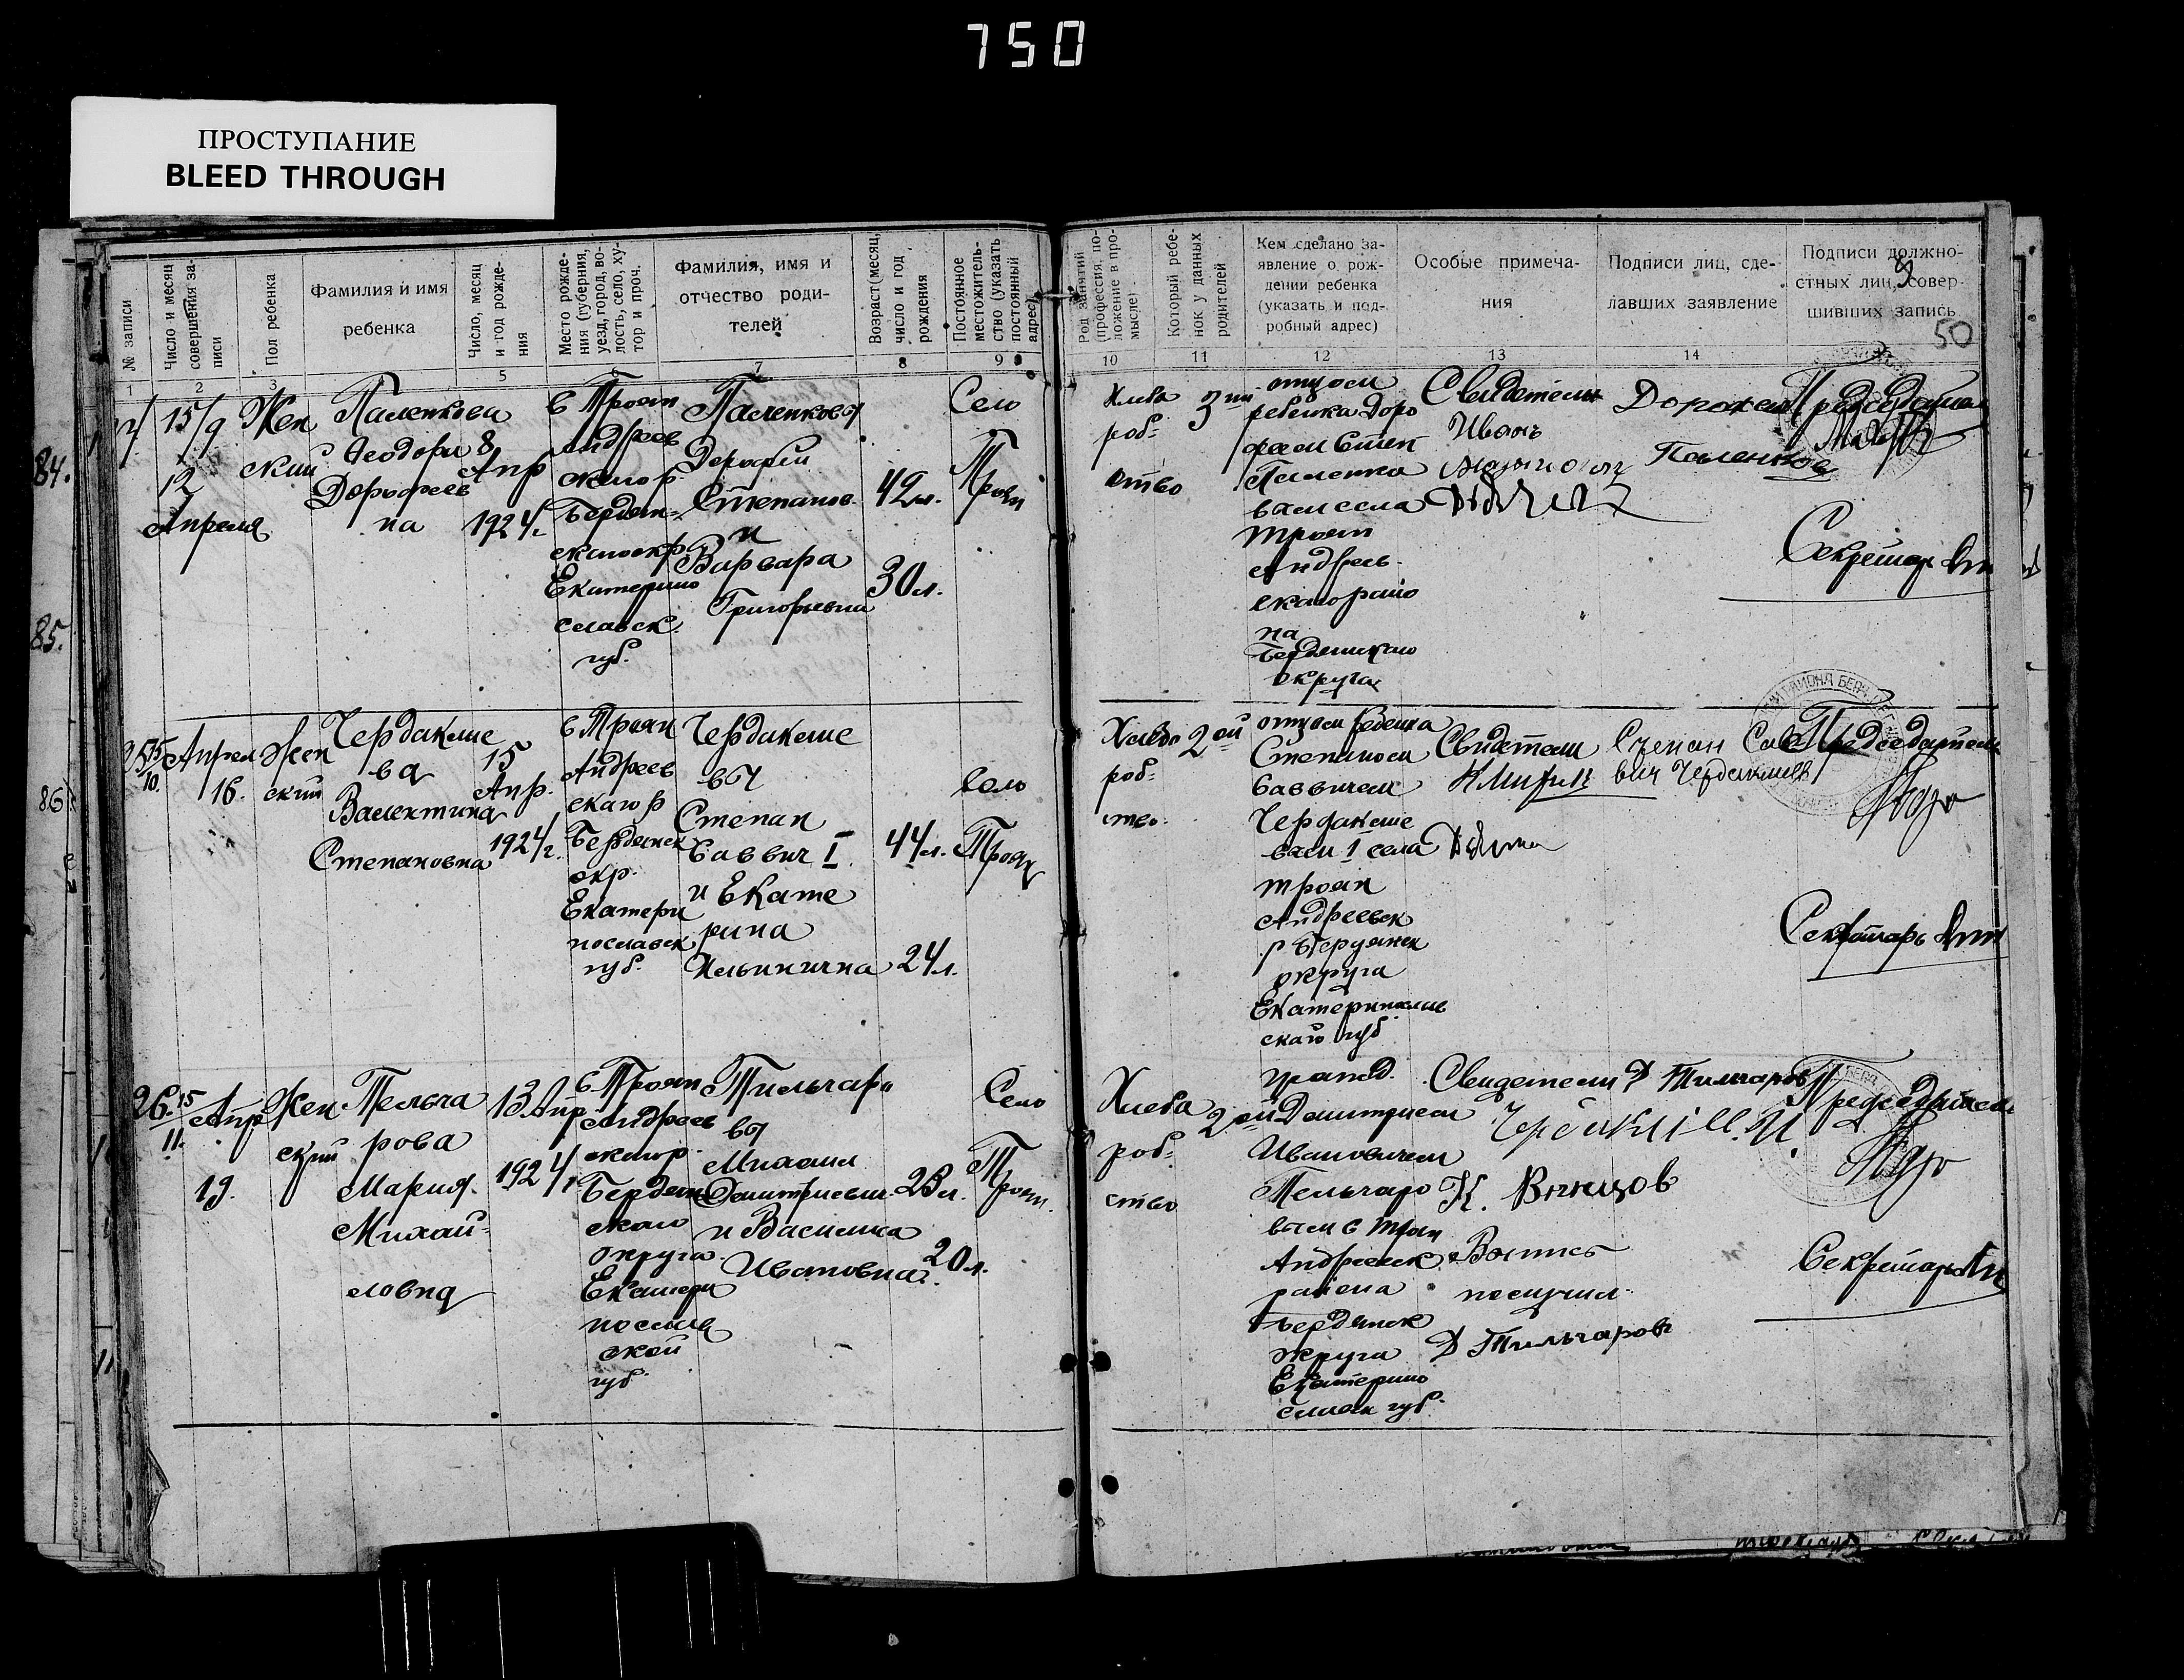 750
ПРОСТУПАНИЕ
BLEED THROUGH
№ записи
Число и месяц совершения записи
Пол ребенка
Фамилия и имя
ребенка
Число, месяц
и год рожде-
ния
Место рожде-
ния (губерния,
уезд, город, во-
лость, село, ху-
тор и проч.
Фамилия, имя и
отчество роди-
телей
Возраст (месяц,
число и год
рождения
Постоянное
местожитель-
ство (указать
постоянный
адрес)
Род занятий
(профессия, по-
ложение в про-
мысле)
Который ребе-
нок у данных
родителей
Кем сделано за-
явление о рож-
дении ребенка
(указать и под-
робный адрес)
Особые примеча-
ния
Подписи лиц, сде-
лавших заявление
Подписи должно-
стных лиц, совер-
шивших запись
50
1 2 3 5 7 8 9 10 11 12 13 14
84.
85.
86
15/9
12
Апреля
Жен
ский
Паленкова
Феодора
Дорофеев
на
8
Апр
1924г.
в Троян
Андреев
ского р.
Бердян-
ского окр.
Екатерино
славск.
губ.
Паленковы
Дорофей
Степанов.
и
Варвара
Григорьевна
42л.
30л.
Село
Троян
Хлеба
роб-
ство
3ий
отцом
ребенка Доро
феем Степ
Паленко
вым села
Троян
Андреев-
ского райо
на
Бердянского
округа
Свидетели
Иван
Дорофей
Паленков
Председатель
Секретарь
15
10.
Апрел
16.
Жен
ский
Чердаклие
ва
Валентина
Степановна
15
Апр.
1924г.
в Троян
Андреев
ского р
Бердянск
окр.
Екатери
нославск
губ.
Чердаклие
вы
Степан
Саввич I.
и Екате
рина
Ильинична
44л.
24л.
Село
Троян
Хлебо
роб-
ство
2ой
отцом ребенка
Степаном
Саввичем
Чердаклие
вым 1 села
Троян
Андреевск
р Бердянск
округа
Екатеринослав
ской губ
Свидетели
Степан Сав
вич Чердаклиев
Председатель
Секретарь
26.
15
11.
Апр
19.
Жен-
ский
Тельча
рова
Мария
Михай-
ловна
13 Апр
1924г
в Троян
Андреев
ского р.
Бердян
ского
округа
Екатери
нослав
ской
губ.
Тильчаро
вы
Михаил
Дмитриевич
и Василиса
Ивановна
23л.
20л.
Село
Троян.
Хлеба
роб-
ство
2ой
гражд.
Дмитрием
Ивановичем
Тельчаро
вым с Троян
Андреевск
района
Бердянск
округа
Екатерино
славск губ.
Свидетели Д Тильчаров
Выпись
получил
Д Тильчаров
Председатель
Секретарь